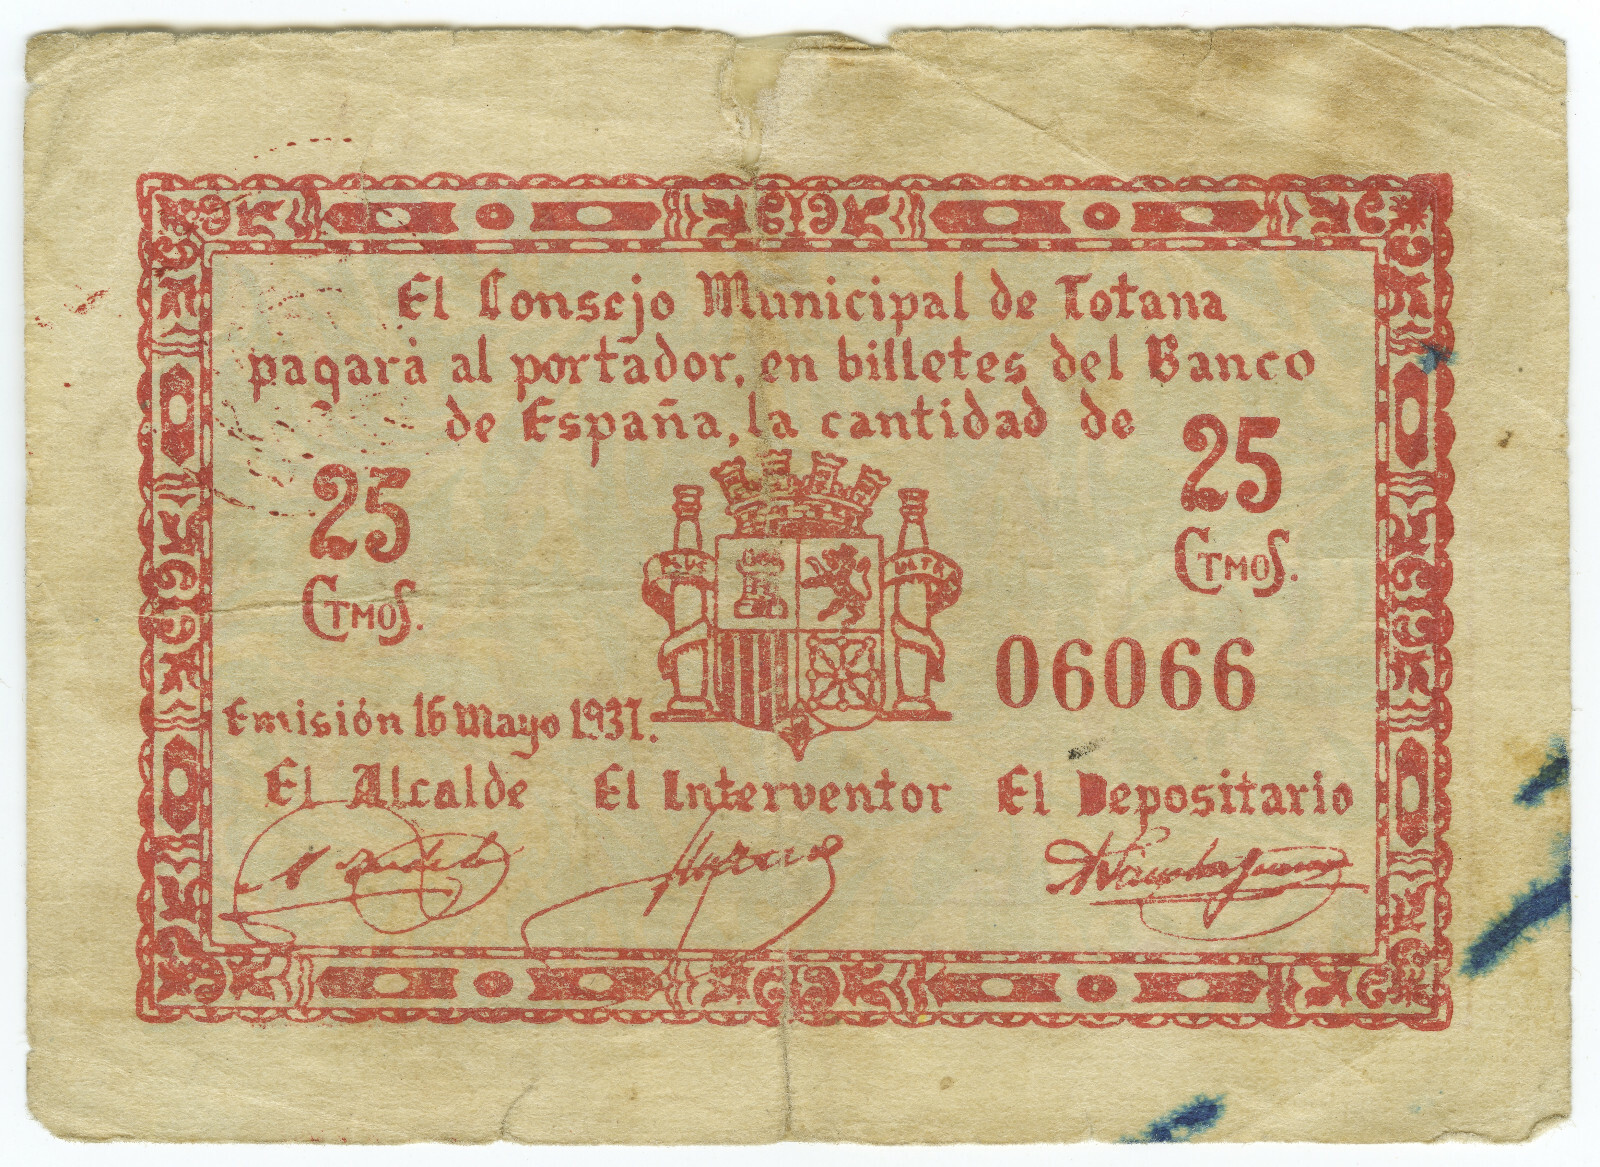 El Consejo Municipal de Totana
pagará al portador, en billetes del Banco
de España, la cantidad de
25 Ctmos.
25 Ctmos.
PLUS ULTRA
06066
Emisión 16 Mayo 1937.
El Alcalde El Interventor El Depositario